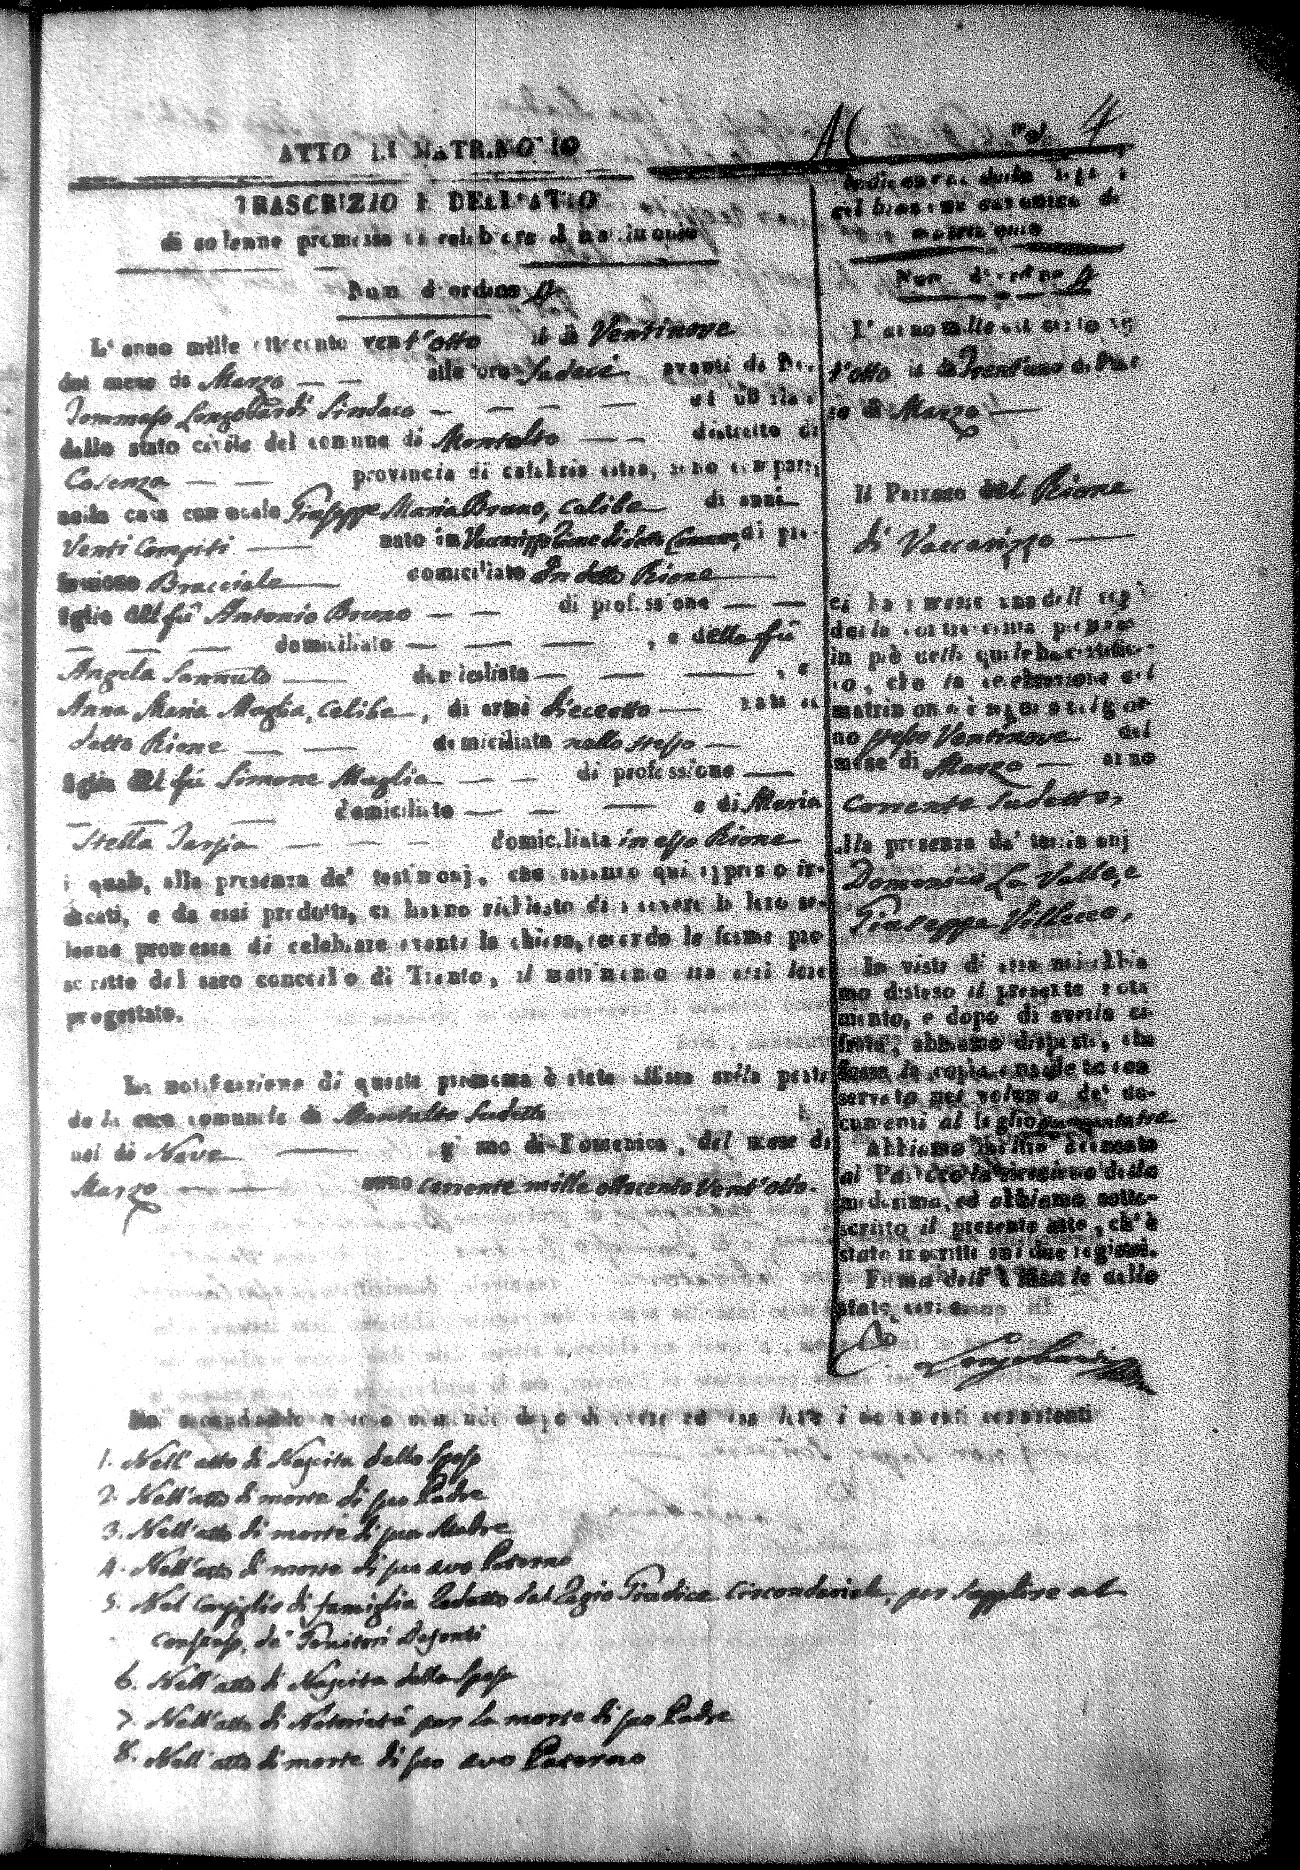 4
ATTO DI MATRIMONIO
TRASCRIZIONE DELL'ATTO
di solenne promessa di celebrare il matrimonio
Num d'ordine 4
L'anno mille ottocento vent'otto il dì Ventinove
del mese di Marzo alle ore Sedeci avanti di Noi
Tommaso Longobardi Sindaco ed ufiziale
dello stato civile del comune di Montalto distretto di
Cosenza provincia di calabria citra, sono comparsi
nella casa comunale Giuseppe Maria Bruno, celibe di anni
Venti Compiti nato in Vaccarizzo Rione di detto Comune, di pro-
fessione Bracciale domiciliato In detto Rione
figlio del fù Antonio Bruno di professione
domiciliato , e della fù
Angela Sannuto domiciliata , e
Anna Maria Maglia, celibe, di anni dieceotto nata in
detto Rione domiciliata nello stesso
figlia del fù Simone Maglia di professione
domiciliato e di Maria
Stella domiciliata in esso Rione
i quali, alla presenza de' testimonj, che saranno qui appresso in-
dicati, e da essi prodotti, ci hanno richiesto di ricevere la loro so-
lenne promessa di celebrare avanti la chiesa, secondo le forme pre-
scritte dal sacro concilio di Trento, il matrimonio tra essi loro
progettato.
La notificazione di questa promessa è stata affissa sulla porta
della casa comunale di Montalto sudetto
nel dì Nove giorno di Domenica, del mese di
Marzo anno corrente mille ottocento Vent'otto.
Indicazione della seguita
celebrazione canonica di
matrimonio
Num d'ordine 4
L'anno mille ottocento ve
t'otto il dì Trent'uno di
di Marzo
Il Parroco del Rione
di Vaccarizzo
ci ha rimesso una delle copie
della controscritta promessa
in piè della quale ha certifica-
to, che la celebrazione del
matrimonio è seguita nel gior-
no stesso Ventinove del
mese di Marzo anno
corrente sudetto,
alla presenza de' testimonj
Domenico La Valle, e
Giuseppe Villecco,
In vista di essa noi abbia-
mo disteso il presente nota-
mento, e dopo di averla ci-
frata, abbiamo disposto, che
fosse la copia anzidetta con
servata nel volume de' do-
cumenti al foglio
Abbiamo inoltre accusato
al Parroco la ricezione della
medesima, ed abbiamo sotto-
scritto il presente atto, ch'è
stato inscritto sui due registri.
Firma dell'Ufiziale dello
stato civile
Longobardi
1. Nell'atto di Nascita dello Sposo
2. Nell'atto di morte di suo Padre
3. Nell'atto di morte di sua Madre
4. Nell'atto di morte di suo avo Paterno
5. Nel Consiglio di famiglia redatto dal Regio Giudice Circondariale, per supplire al
consenso, de' Genitori Defonti
6. Nell'atto di Nascita della Sposa
7. Nell'atto di Notorietà per la morte di suo Padre
8. Nell'atto di morte di suo avo Paterno